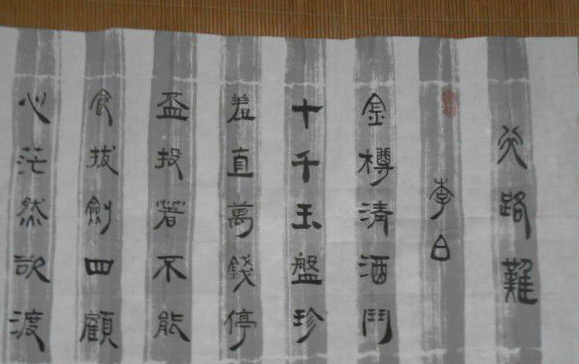 行路難
李白
金樽清酒鬥
十千玉盤珍
羞直萬錢停
盃投著不能
食拔劍四顧
心茫然欲渡